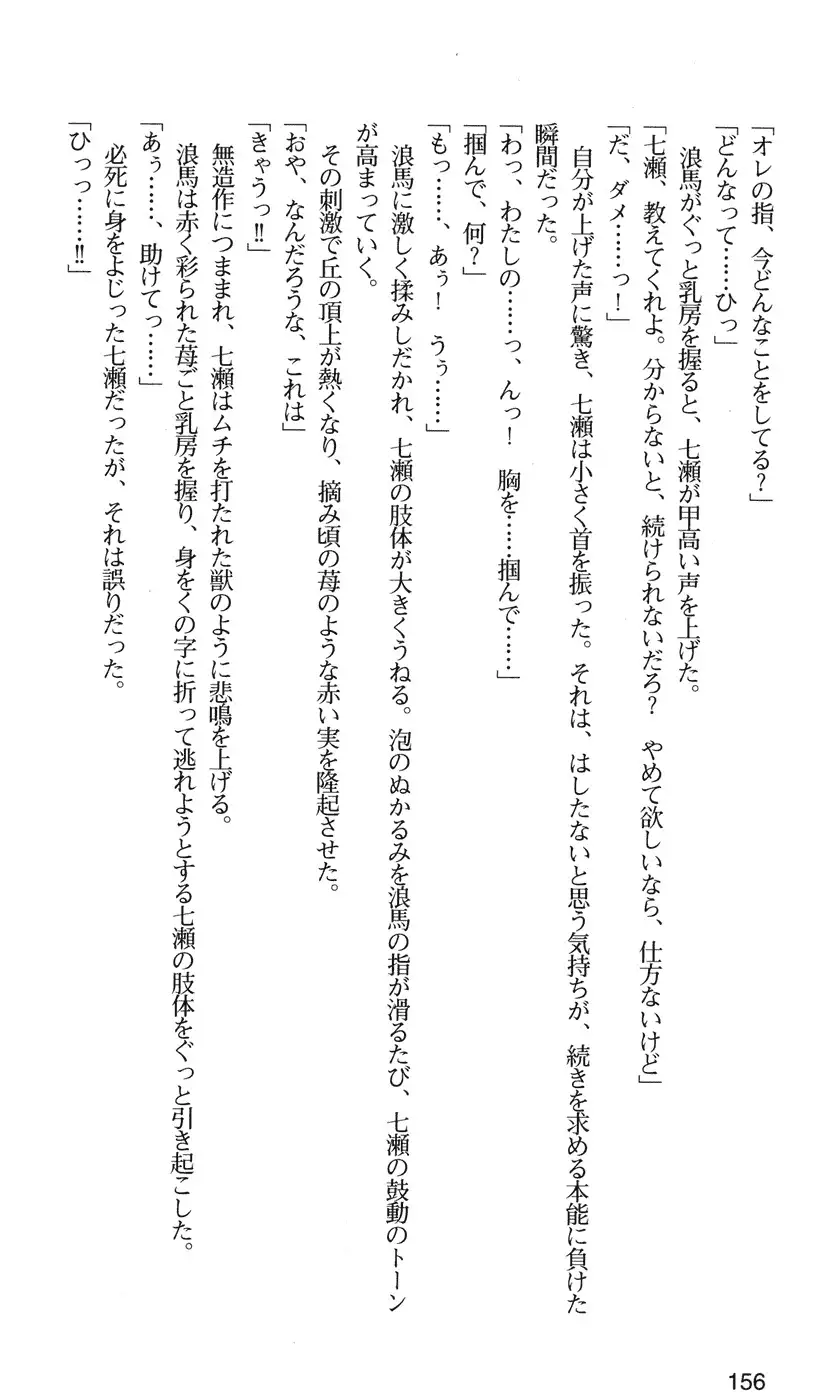 「オレの指、今どんなことをしてる？」
「どんなって……ひっ」
　浪馬がぐっと乳房を握ると、七瀬が甲高い声を上げた。
「七瀬、教えてくれよ。分からないと、続けられないだろ？　やめて欲しいなら、仕方ないけど」
「だ、ダメ……っ！」
　自分が上げた声に驚き、七瀬は小さく首を振った。それは、はしたないと思う気持ちが、続きを求める本能に負けた
瞬間だった。
「わっ、わたしの……っ、んっ！　胸を……掴んで……」
「掴んで、何？」
「もっ……、あぅ！　うぅ……」
　浪馬に激しく揉みしだかれ、七瀬の肢体が大きくうねる。泡のぬかるみを浪馬の指が滑るたび、七瀬の鼓動のトーン
が高まっていく。
　その刺激で丘の頂上が熱くなり、摘み頃の苺のような赤い実を隆起させた。
「おや、なんだろうな、これは」
「きゃうっ‼」
　無造作につままれ、七瀬はムチを打たれた獣のように悲鳴を上げる。
　浪馬は赤く彩られた苺ごと乳房を握り、身をくの字に折って逃れようとする七瀬の肢体をぐっと引き起こした。
「あぅ……、助けてっ……」
　必死に身をよじった七瀬だったが、それは誤りだった。
「ひっっ……‼」
156